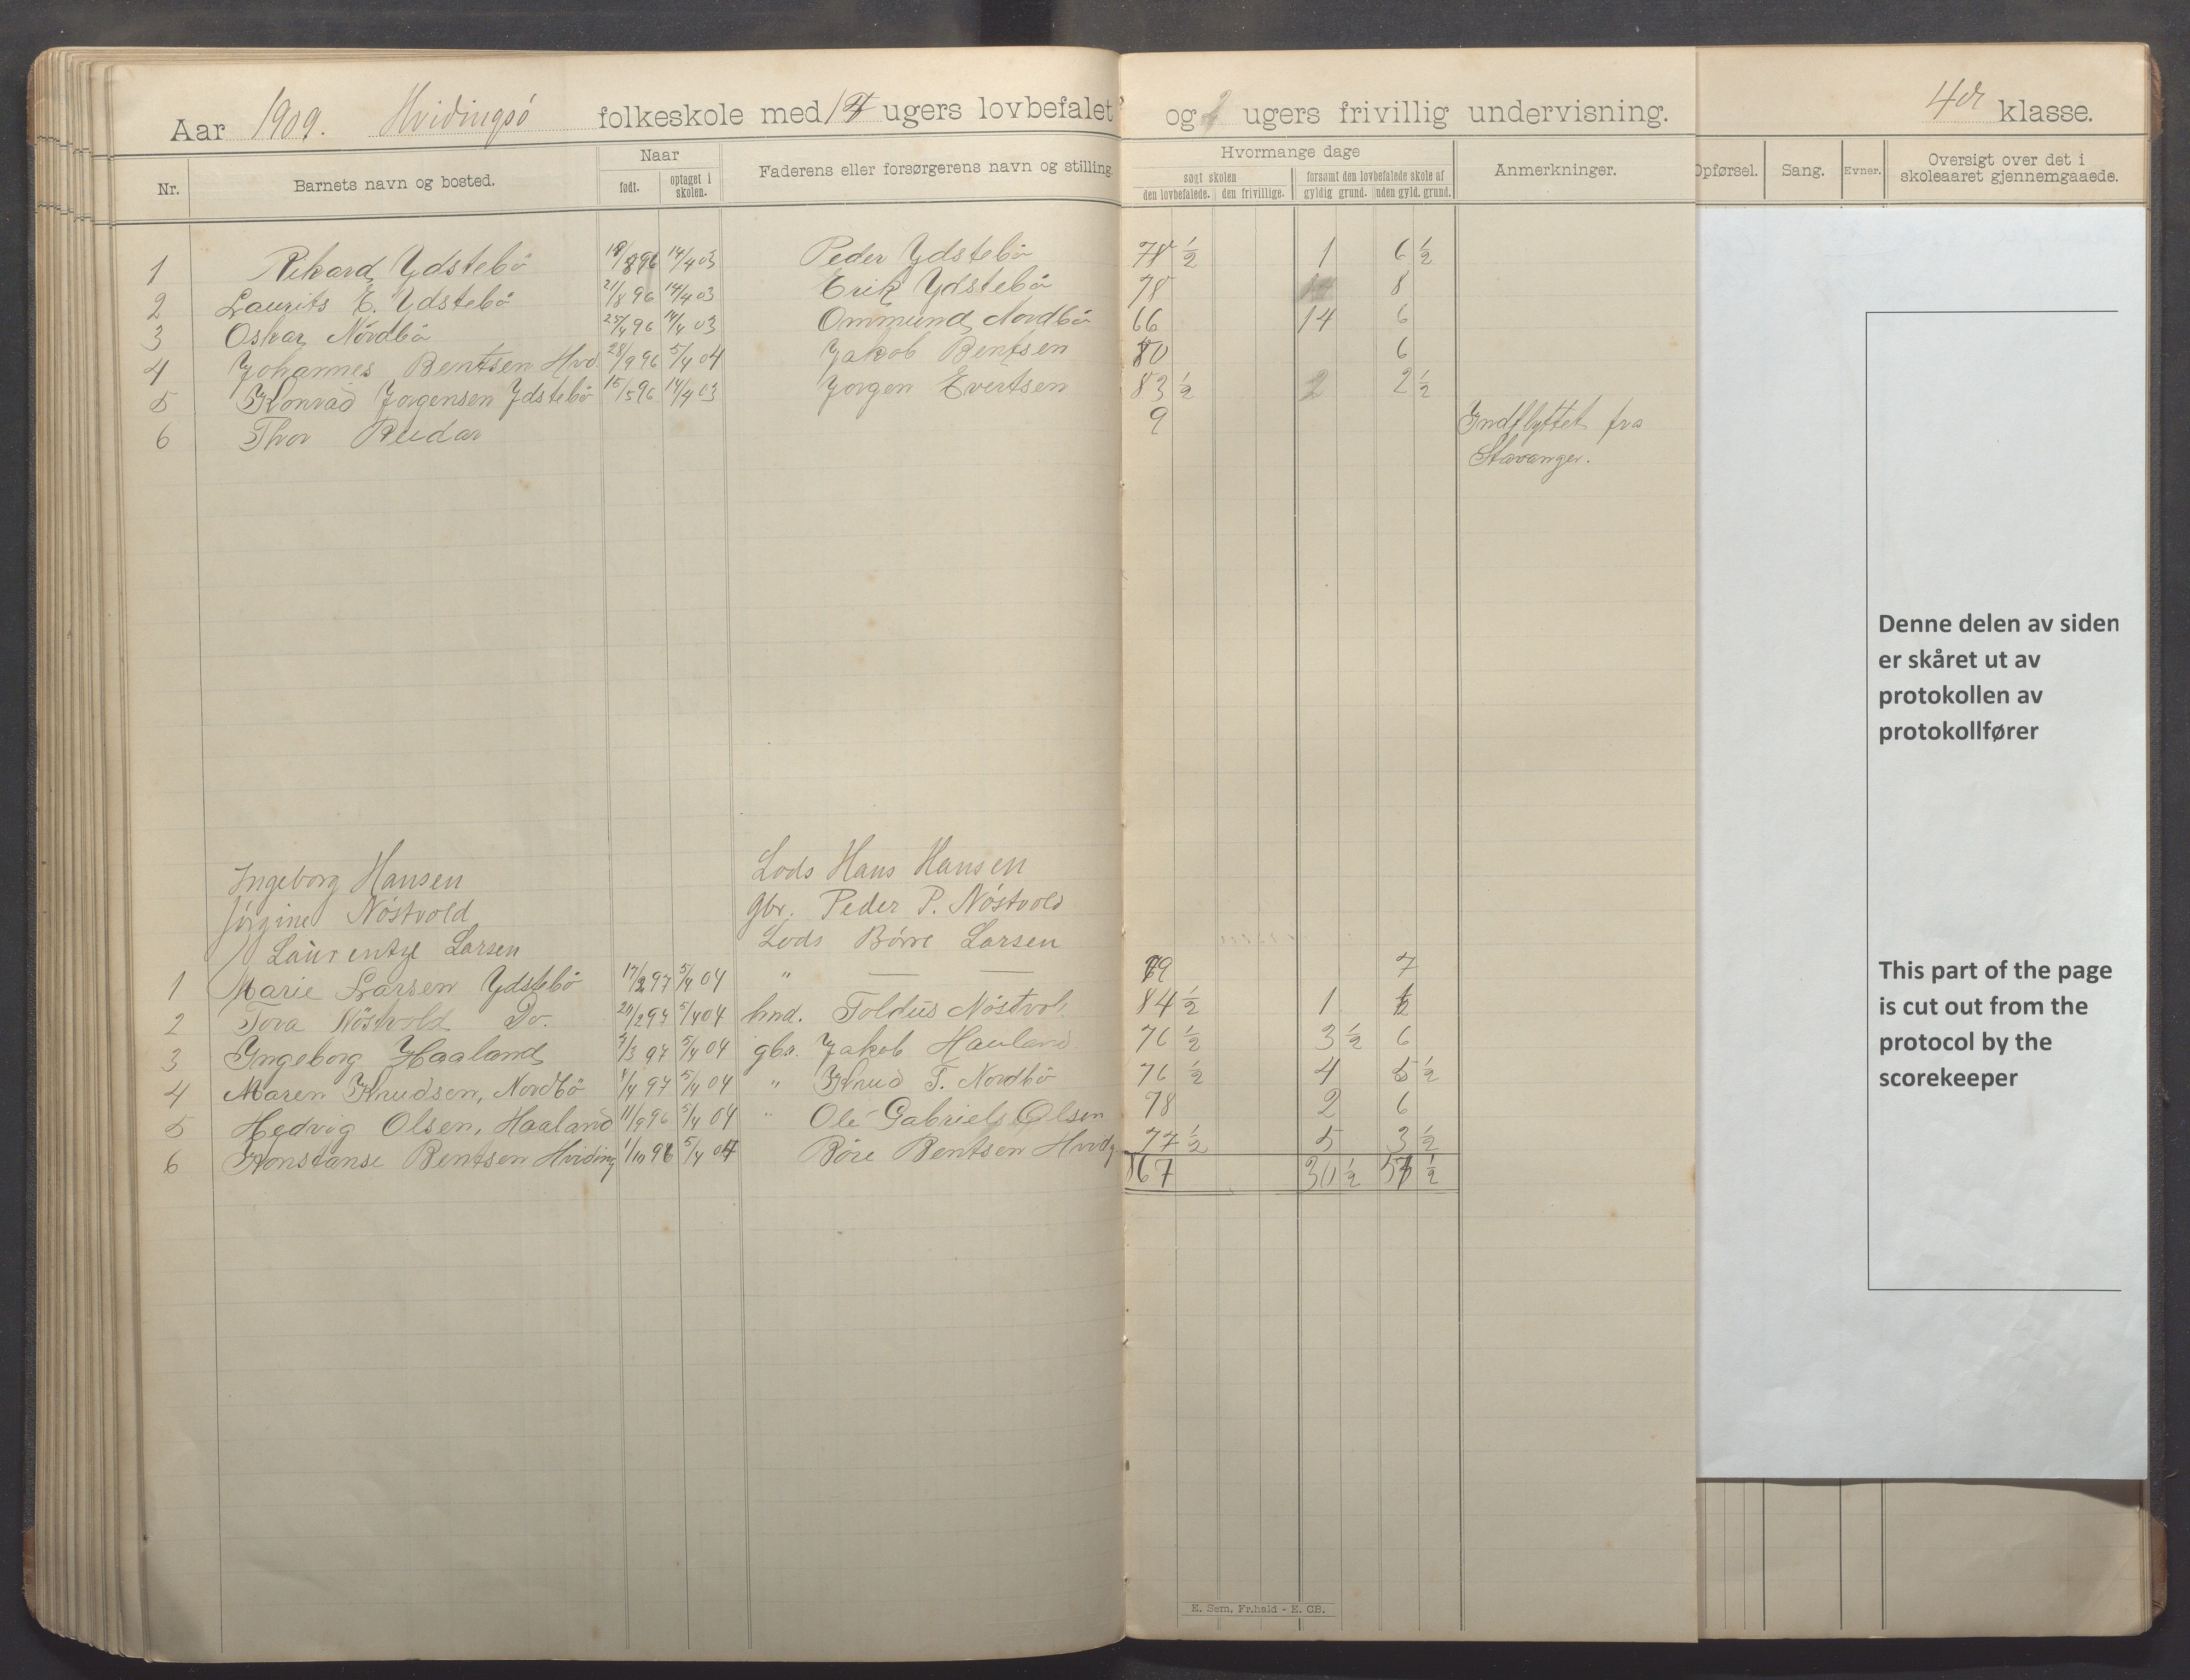 Aar 1909. Hvidingsö folkeskole med ugers lovbefalet og 2 ugers frivillig undervisning. 4de klasse.
Nr. Barnets navn og bosted. Naar født. optaget i skolen. Faderens eller forsørgerens navn og stilling. Hvormange dage søgt skolen den lovbefalede. den frivillige. forsømt den lovbefalede skole af gyldig grund. uden gyld. grund. Anmerkninger. Opførsel. Sang. Evner. Oversigt over det i skoleaaret gjennemgaaede.
1 Rikard Ydstebö 18/8 96 14/4 03 Peder Ydstebö 78 1/2 1 6 1/2
2 Laurits E. Ydstebö 21/8 96 14/4 03 Erik Ydstebö 78 8
3 Oskar Nordbö 25/4 96 14/4 03 Ommund Nordbö 66 14 6
4 Johannes Bentsen Hvd 28/9 96 5/4 04 Jakob Bentsen 80 6
5 Konrad Jorgensen Ydstebö 15/5 96 14/4 03 Jorgen Evertsen 83 1/2 2 2 1/2
6 Thor Reidar 9 Indflyttet fra
Stavanger.
Ingeborg Hansen Lods Hans Hansen
Jörgine Nöstvold gbr. Peder P. Nöstvold
Laurentze Larsen Lods Börre Larsen
1 Marie Larsen Ydstebö 17/2 97 5/4 04 " — — 79 7
2 Tora Nöstvold Do. 20/2 97 5/4 04 hnd. Toldus Nöstvol 84 1/2 1
3 Ingeborg Haaland 7/3 97 5/4 04 gbr. Jakob Hauland 76 1/2 3 1/2 6
4 Maren Knudsen, Nordbö 1/4 97 5/4 04 " Knud T. Nordbö 76 1/2 4 5 1/2
5 Hedvig Olsen, Haaland 11/9 96 5/4 04 " Ole Gabriels Olsen 78 2 6
6 Konstanse Bentsen Hviding 1/10 96 5/4 04 Böre Bentsen Hvidg 77 1/2 5 3 1/2
867 30 1/2 57 1/2
Denne delen av siden
er skåret ut av
protokollen av
protokollfører
This part of the page
is cut out from the
protocol by the
scorekeeper
E. Sem, Fr.hald - E. CB.